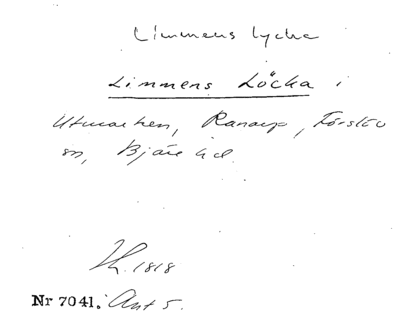 Limmens lycka
Limmens Löcka i
Utmarken, Ranarp, Förslöv
sn, Bjäre hd.
Lh. 1818
Nr 7041. Ant 5.